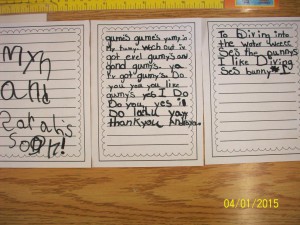 Myh
and
Sarahs
Book!
gume's gume's yumy in
the tumy. Woch out iv
got evel gumy's and
good gumy's. yes
I'v got gumy's. Do
you you you like
gumy's yes I Do
Do you, yes it
Do
thankyou
To Diving into
the water
Ses the bunnys
I like Diving
Ses bunny #1
04/01/2015